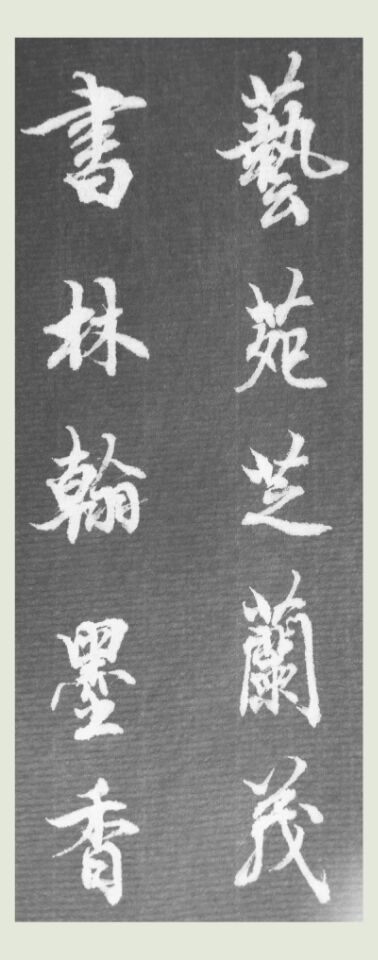 藝苑芝蘭茂
書林翰墨香